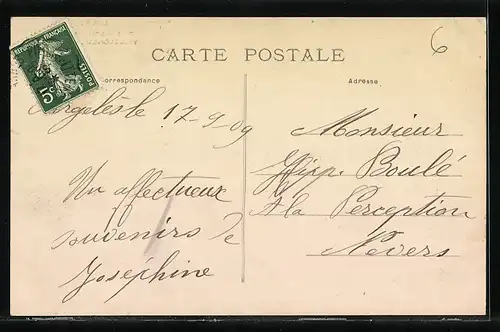 6
CARTE POSTALE
Correspondance
Adresse
REPUBLIQUE FRANÇAISE
POSTES
5c
Argelès le 17-9-09
Un affectueux
souvenirs de
Joséphine
Monsieur
Hipp. Boulé
A la Perception
Nevers